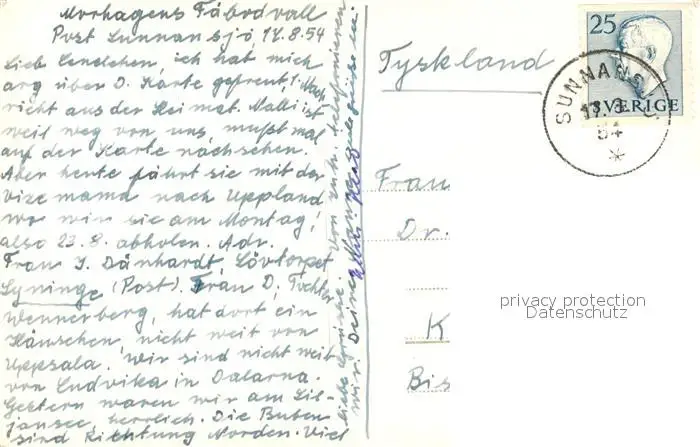 Morhagens Fäbodvall
Post Sunnansjö, 17.8.54
Lieb Lenelchen, ich hab mich
arg über D. Karte gefreut, 1. Nach
richt aus der Heimat. Malli ist
weit weg von uns, mußt mal
auf der Karte nachsehen.
Aber heute fährt sie mit der
vizemama nach Uppland
wo wir sie am Montag,
also 23.8. abholen. Adr.
Frau I. Dänhardt, Lövtorpet
Lyninge (Post). Frau D, Tochter
Wennerberg, hat dort ein
Häuschen, nicht weit von
Uppsala. Wir sind nicht weit
von Ludvika in Dalarna.
Gestern waren wir am Sil-
jansee, herrlich. Die Buben
sind Richtung Norden. Viel
liebe Grüße von
wir Deine
Tyskland
Frau
Dr.
K
Bis
25
SVERIGE
SUNNANSJÖ
17.8
54
privacy protection
Datenschutz